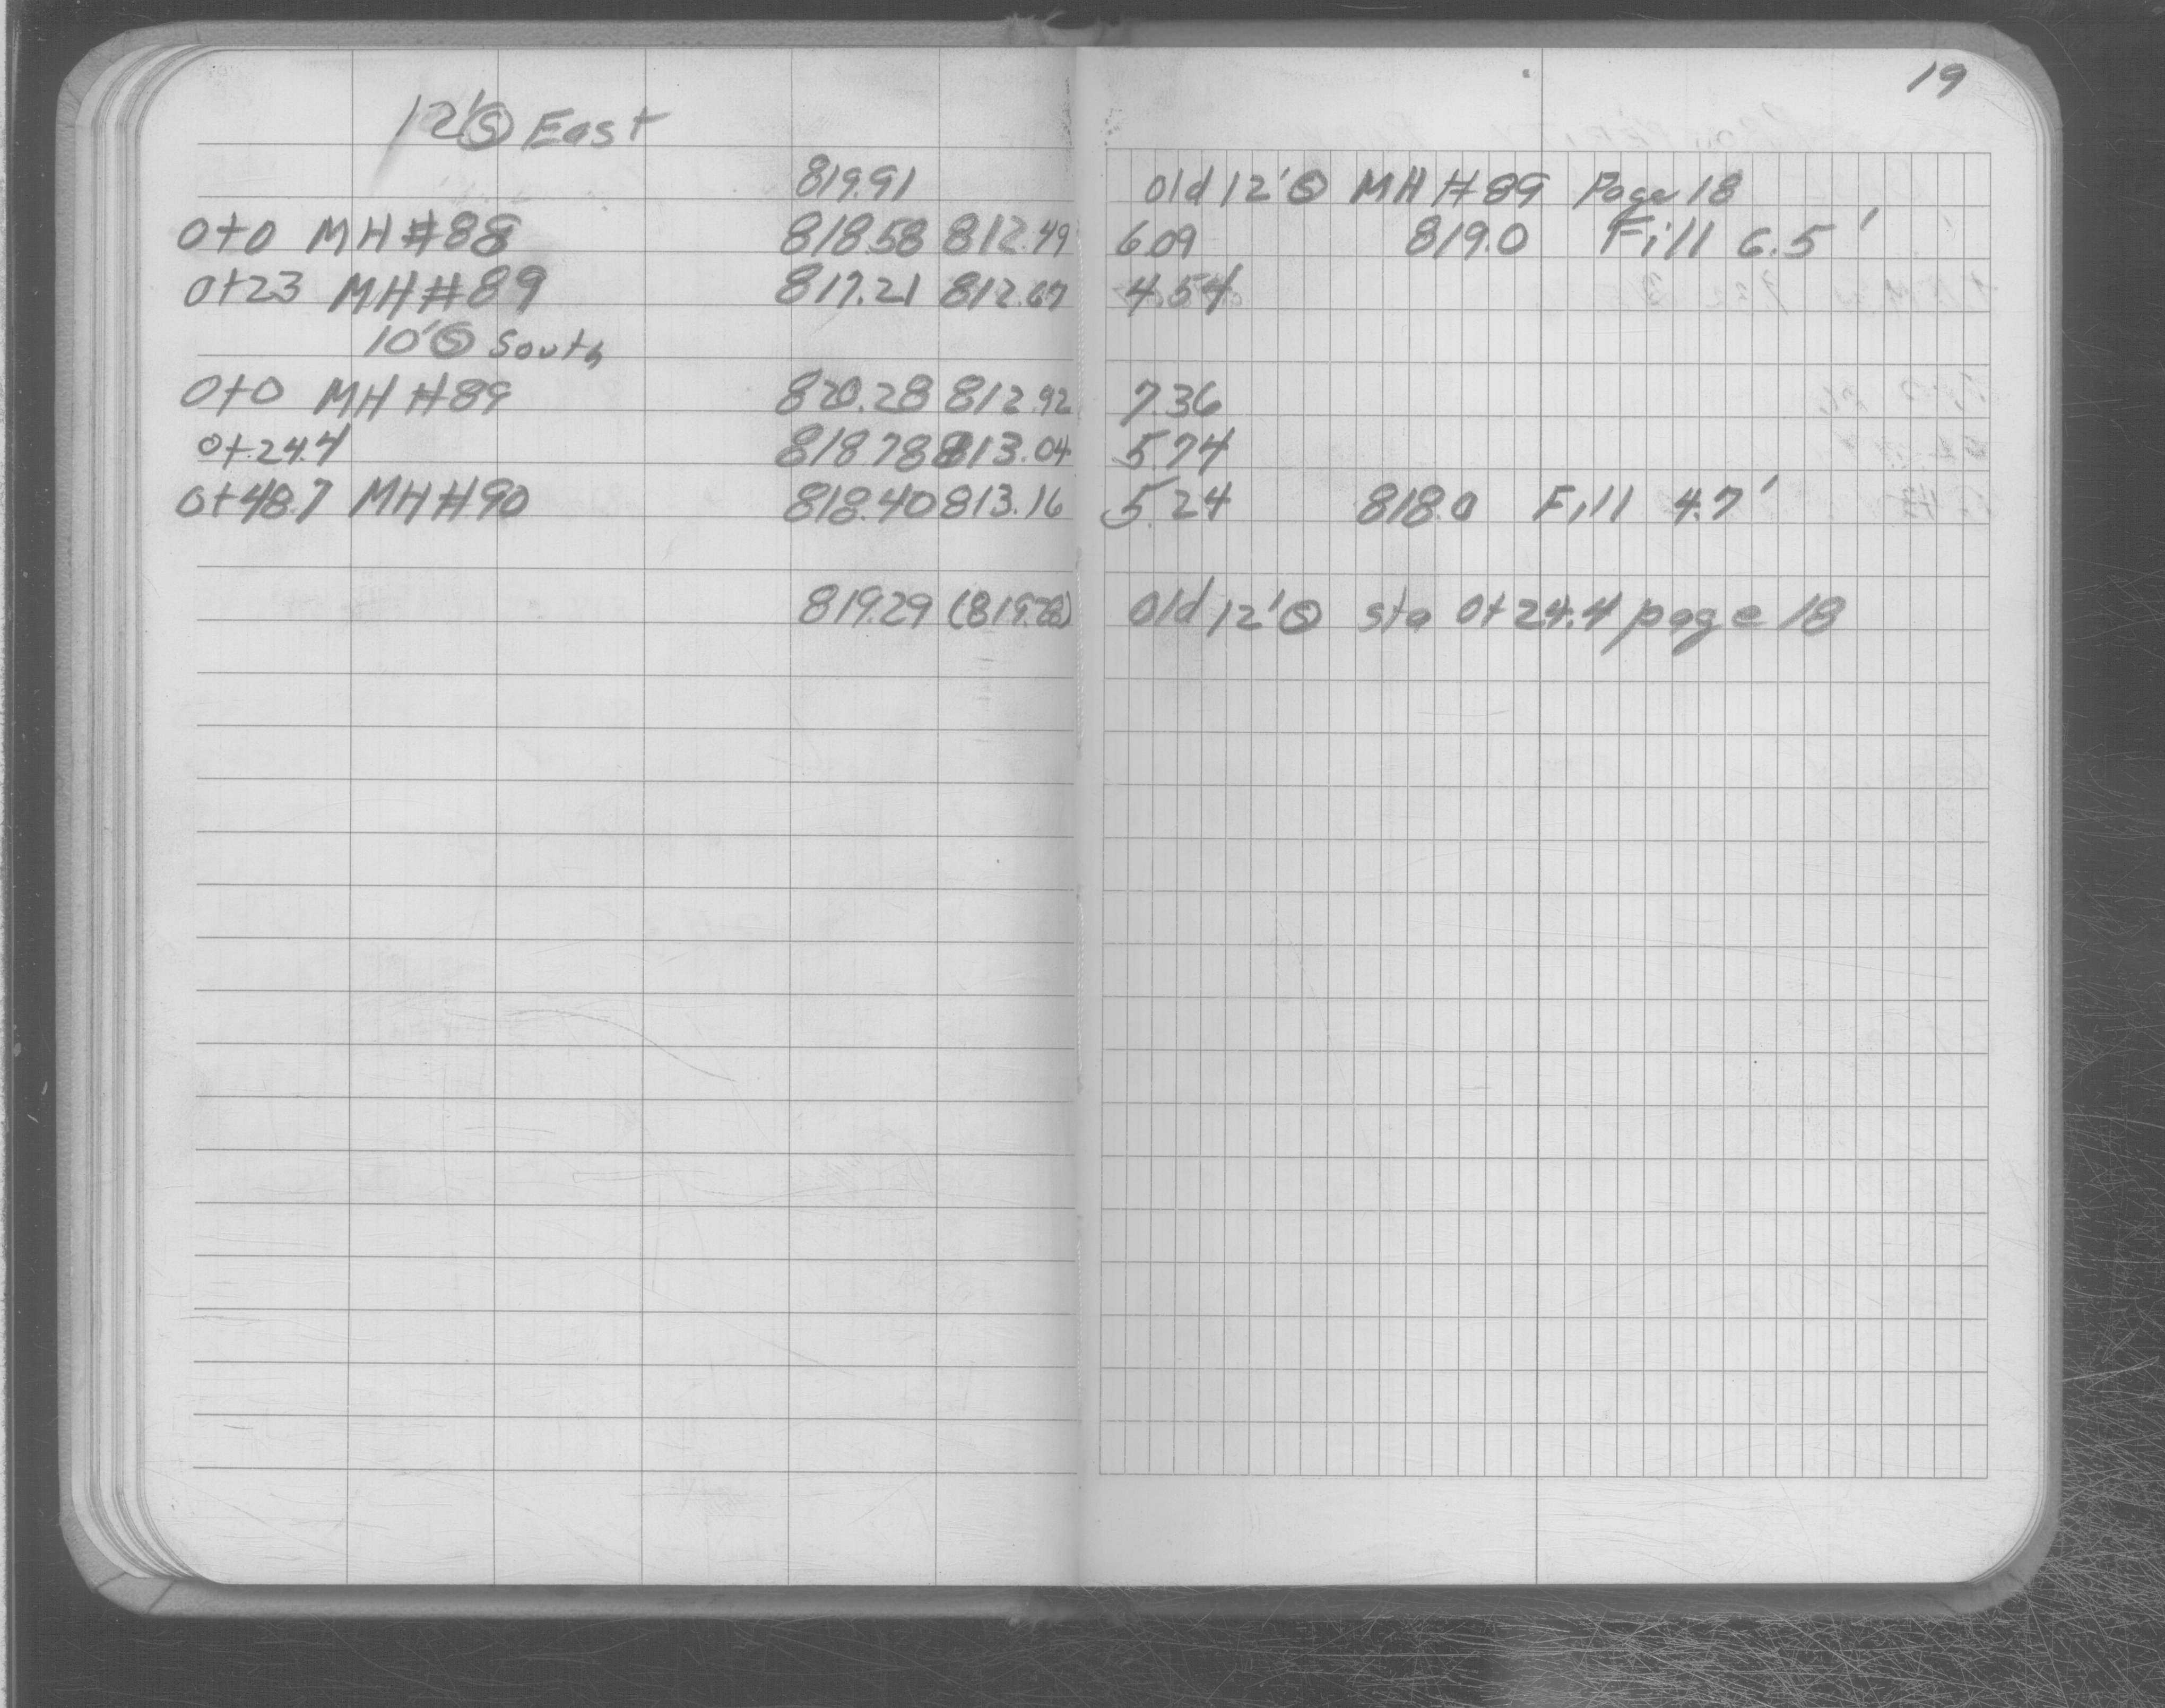 19
12'Ⓢ East
819.91 Old 12'Ⓢ MH #89 Page 18
0+0 MH #88 818.58 812.49 6.09 819.0 Fill 6.5'
0+23 MH #89 817.21 812.67 4.54
10'Ⓢ South
0+0 MH #89 820.28 812.92 7.36
0+24.4 818.78 813.04 5.74
0+48.7 MH #90 818.40 813.16 5.24 818.0 Fill 4.7'
819.29 (819.28) Old 12'Ⓢ sta 0+24.4 page 18